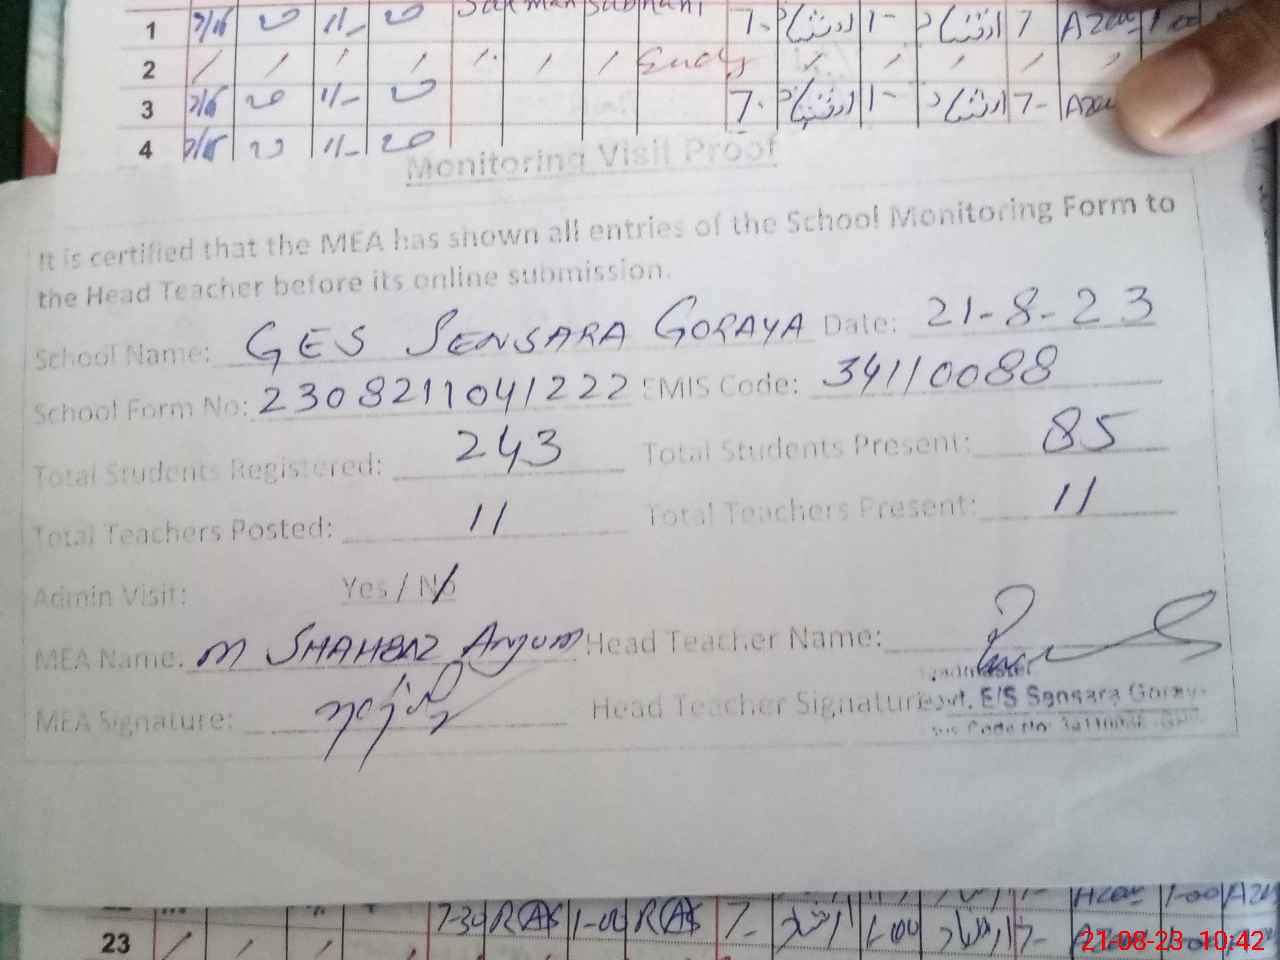 1 7. ارشاد 1- ارشاد 7
2
3 7. ارشاد 1- ارشاد 7-
4
Monitoring Visit Proof
It is certified that the MEA has shown all entries of the School Monitoring Form to
the Head Teacher before its online submission.
School Name: GES SENSARA GORAYA Date: 21-8-23
School Form No: 2308211041222 EMIS Code: 34110088
Total Students Registered: 243 Total Students Present: 85
Total Teachers Posted: 11 Total Teachers Present: 11
Admin Visit: Yes / No
MEA Name: M SHAHBAZ Anjum Head Teacher Name:
Headmaster
MEA Signature: Head Teacher Signature: Govt. E/S Sensara Goray
23 7- ارشاد 1-00 ارشاد 7-
21-08-23 10:42